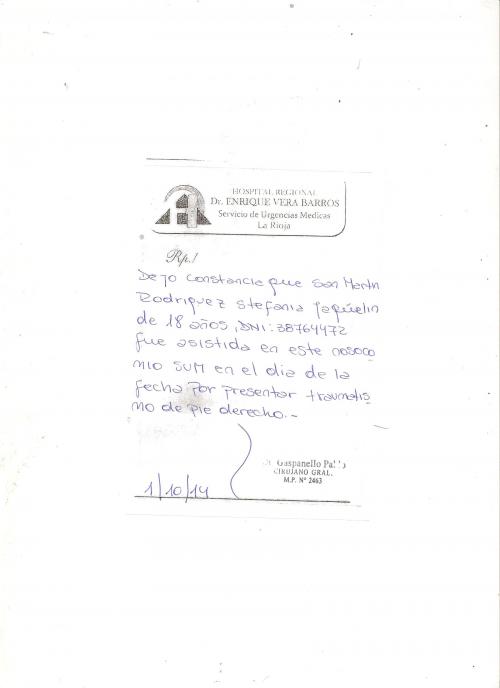 HOSPITAL REGIONAL
Dr. ENRIQUE VERA BARROS
Servicio de Urgencias Medicas
La Rioja
Rp./
Dejo constancia que San Martin
Rodriguez Stefania Jaquelin
de 18 años, DNI: 38764472
fue asistida en este nosoco
mio SUM en el dia de la
fecha por presentar traumatis
mo de pie derecho.-
Gaspanello Pa
CIRUJANO GRAL.
M.P. N° 2463
1/10/14